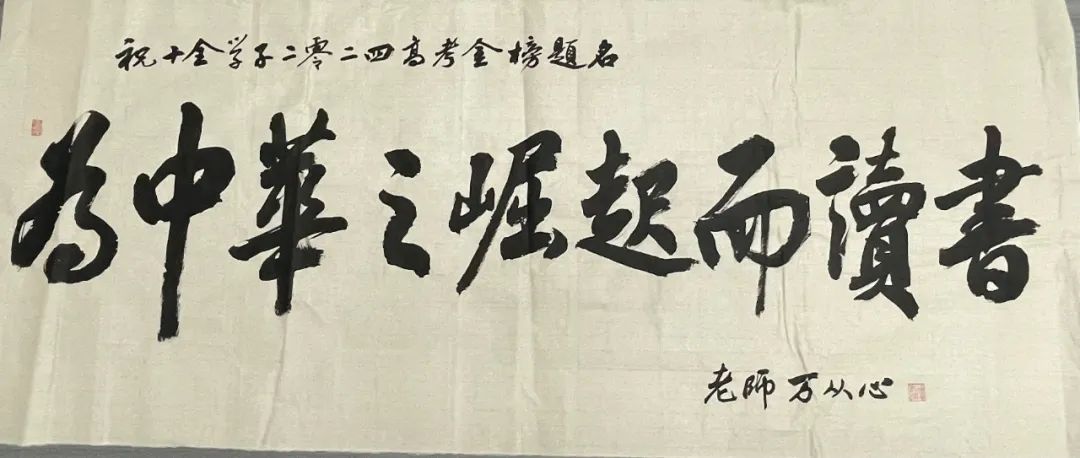 祝十全学子二零二四高考金榜題名
為中華之崛起而讀書
老師万从心